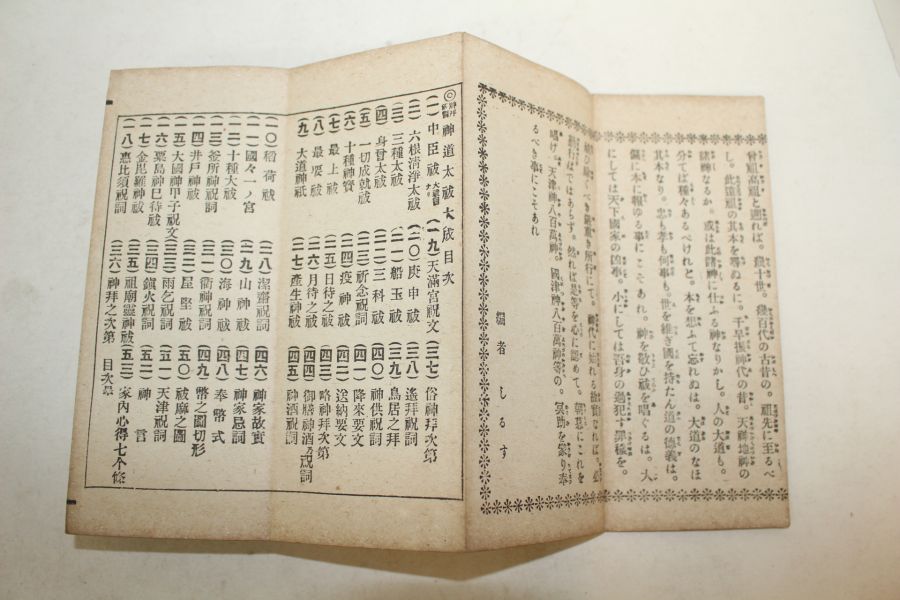 曾祖高祖と遡れば。幾十世。幾百代の古昔の。祖先に至るべ
し。此遠祖の其本を尋ぬるに。千早振神代の昔。天神地祇の
諸神なるか。或は此諸神に仕ふる神なりかし。人の大道も。
分てば種々あるべけれと。本を想ふて忘れぬは。大道のなほ
其本なり。忠も孝も何事も。世を維ぎ國を持たん道の德義は。
偏に本に報ゆる事にこそあれ。神を敬ひ祓を唱ぐるは。大
にしては天下國家の凶事。小にしては吾身の過犯す罪穢を。
所行にて。神代に始れる故實なれば。
然れば是等を心に認めて。朝夕にこれを
唱け。天津神八百萬神。國津神八百萬神等の。冥助を蒙り奉
るべき事にこそあれ
編者しるす
神道太祓大成目次
(一)中臣祓
(二)六根清淨太祓
(三)三種太祓
(四)身曾太祓
(五)一切成就祓
(六)十種神寶
(七)最上祓
(八)最要祓
(九)大道神祇
(一〇)稻荷祓
(一一)國々一ノ宮
(一二)十種大祓
(一三)釜所神祝詞
(一四)井戸神祓
(一五)大國神甲子祝文
(一六)粟島神巳待祓
(一七)金毘羅神祓
(一八)惠比須祝詞
(一九)天滿宮祝文
(二〇)庚申祓
(二一)船玉祓
(二二)三科祓
(二三)祈念祝詞
(二四)疫神祓
(二五)日待之祓
(二六)月待之祓
(二七)產生神祓
(二八)潔齋祝詞
(二九)山神祓
(三〇)海神祓
(三一)衢神祝詞
(三二)屋堅祓
(三三)雨乞祝詞
(三四)鎭火祝詞
(三五)祖廟靈神祓
(三六)神拜之次第
(三七)俗神拜次第
(三八)遙拜祝詞
(三九)鳥居之拜
(四〇)神供祝詞
(四一)降來要文
(四二)送納要文
(四三)略神拜次第
(四四)御膳神酒祝詞
(四五)神酒祝詞
(四六)神家故實
(四七)神家忌詞
(四八)奉幣式
(四九)幣之圖切形
(五〇)祓麻之圖
(五一)天津祝詞
(五二)神言
(五三)家内心得七个條
目次畢